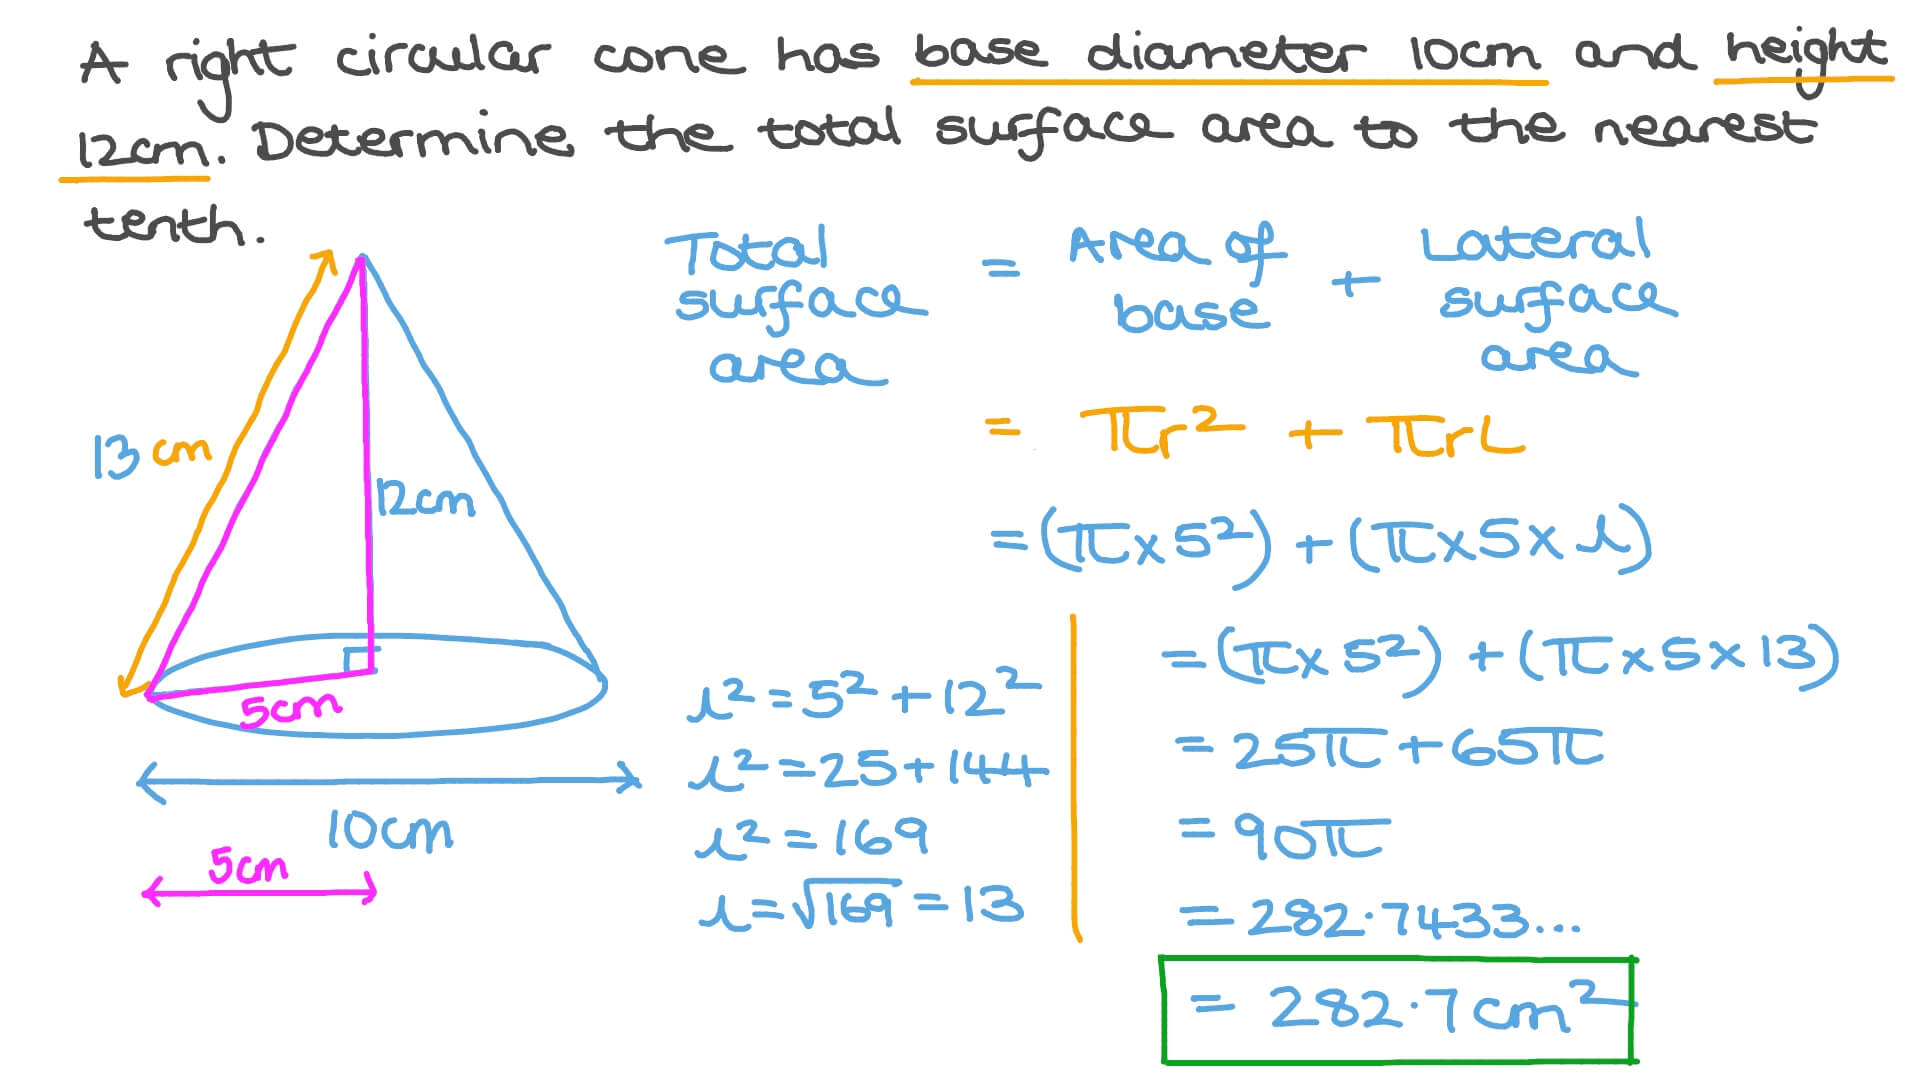 A right circular cone has base diameter 10cm and height
12cm. Determine the total surface area to the nearest
tenth.
Total surface area = Area of base + Lateral surface area
= πr² + πrL
= (π x 5²) + (π x 5 x l)
13 cm
12cm
5cm
10cm
5cm
l² = 5² + 12²
l² = 25 + 144
l² = 169
l = √169 = 13
= (π x 5²) + (π x 5 x 13)
= 25π + 65π
= 90π
= 282.7433...
= 282.7 cm²